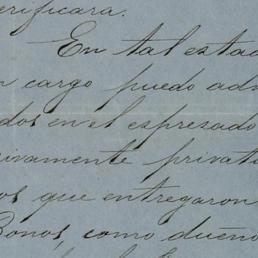 erificara.
En tal estad
n cargo puedo adm
dos en el espresado
rivamente privati
os que entregaron
Bonos, como dueño